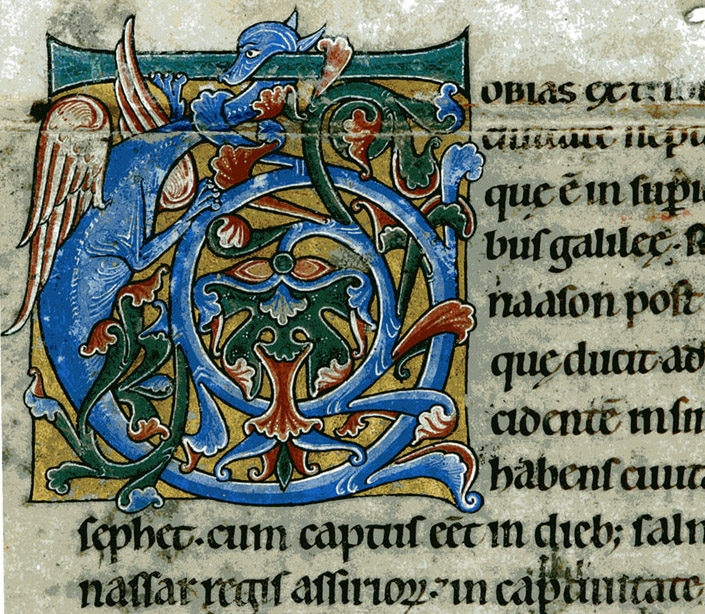 T
OBIAS ex tribu
ciuitate nept
que ē in supi
bus galilee. s
naason post
que ducit ad
cidentē in sin
habens ciuita
sephet. cum captus eēt in dieb; salm
nassar regis assirioꝝ. in captiuitate